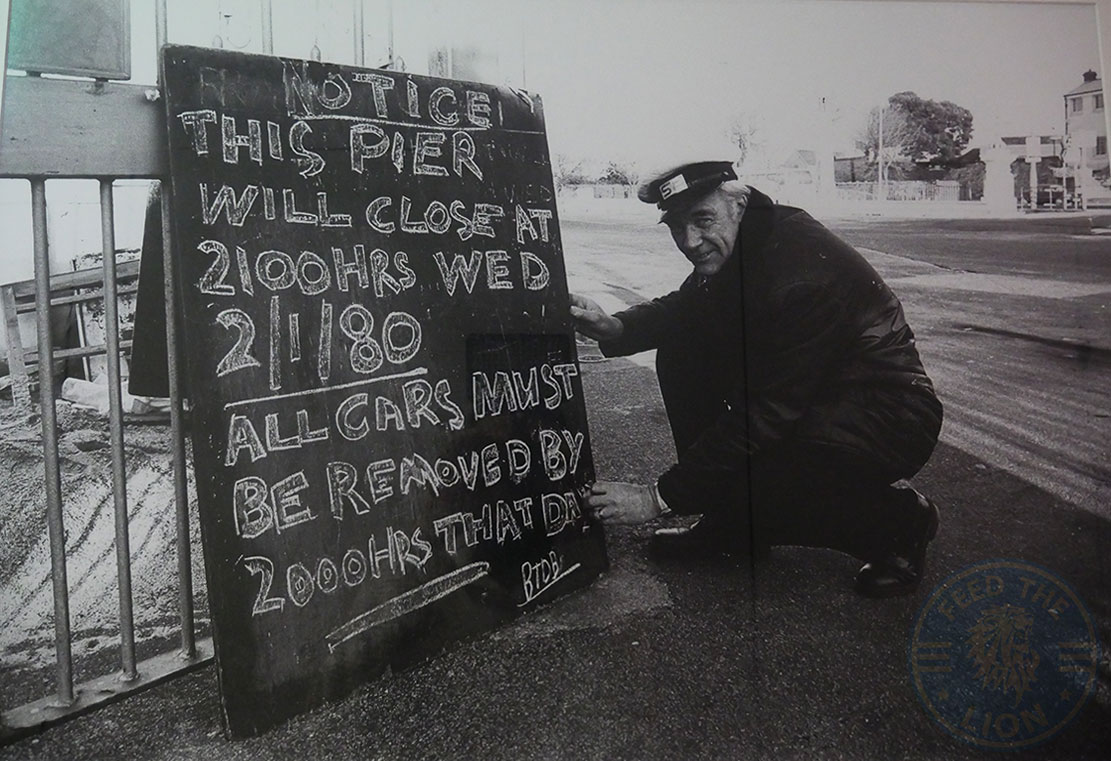 NOTICE
THIS PIER
WILL CLOSE AT
2100HRS WED
2/1/80
ALL CARS MUST
BE REMOVED BY
2000HRS THAT DA
BTDB
FEED THE
LION